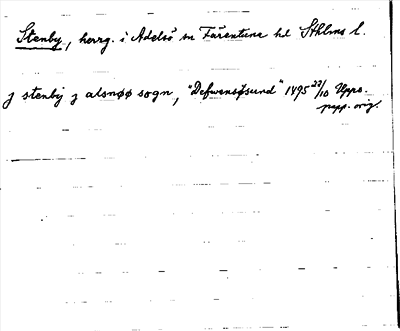 Stenby, herrg. i Adelsö sn Färentuna hd Sthlms l.
j stenbij j alsnøø sogn, "Defwensøsund" 1495 22/10 Upps.
papp. orig.